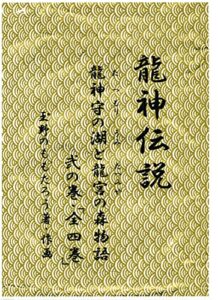 龍神伝説
龍神守の湖と龍宮の森物語
弐の巻「全四巻」
玉野のももたろう著・作画